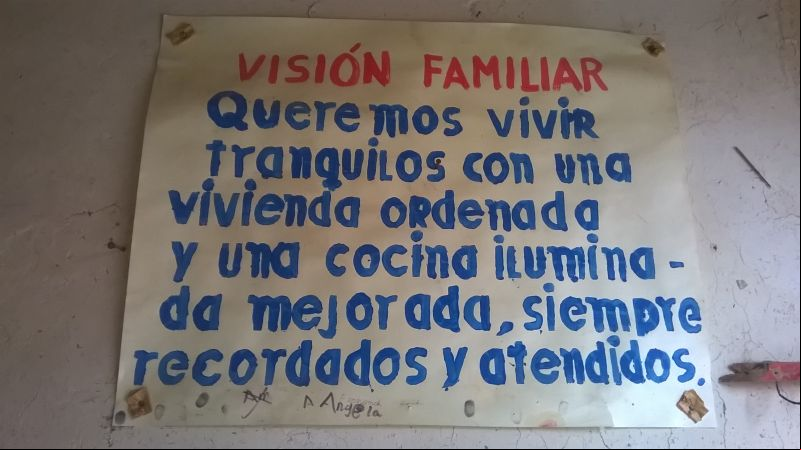 VISIÓN FAMILIAR
Queremos vivir
tranquilos con una
vivienda ordenada
y una cocina ilumina-
da mejorada, siempre
recordados y atendidos.
Angela